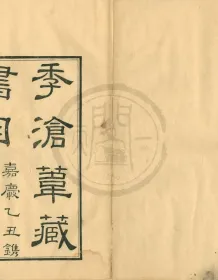 季滄葦藏
書目
嘉慶乙丑鐫